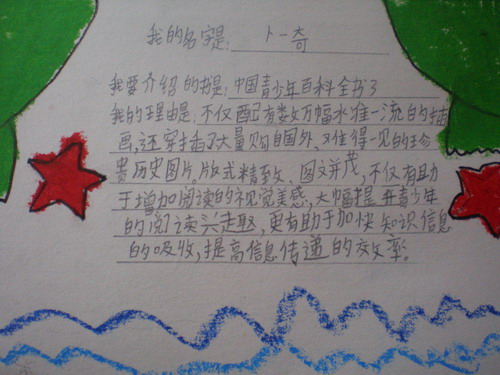 我的名字是: 卜一奇
我要介绍的书是: 中国青少年百科全书3
我的理由是: 不仅配有数万幅水准一流的插
画,还穿插了大量购自国外、难得一见的珍
贵历史图片,版式精致、图文并茂,不仅有助
于增加阅读的视觉美感、大幅提升青少年
的阅读兴趣,更有助于加快知识信息
的吸收,提高信息传递的效率。